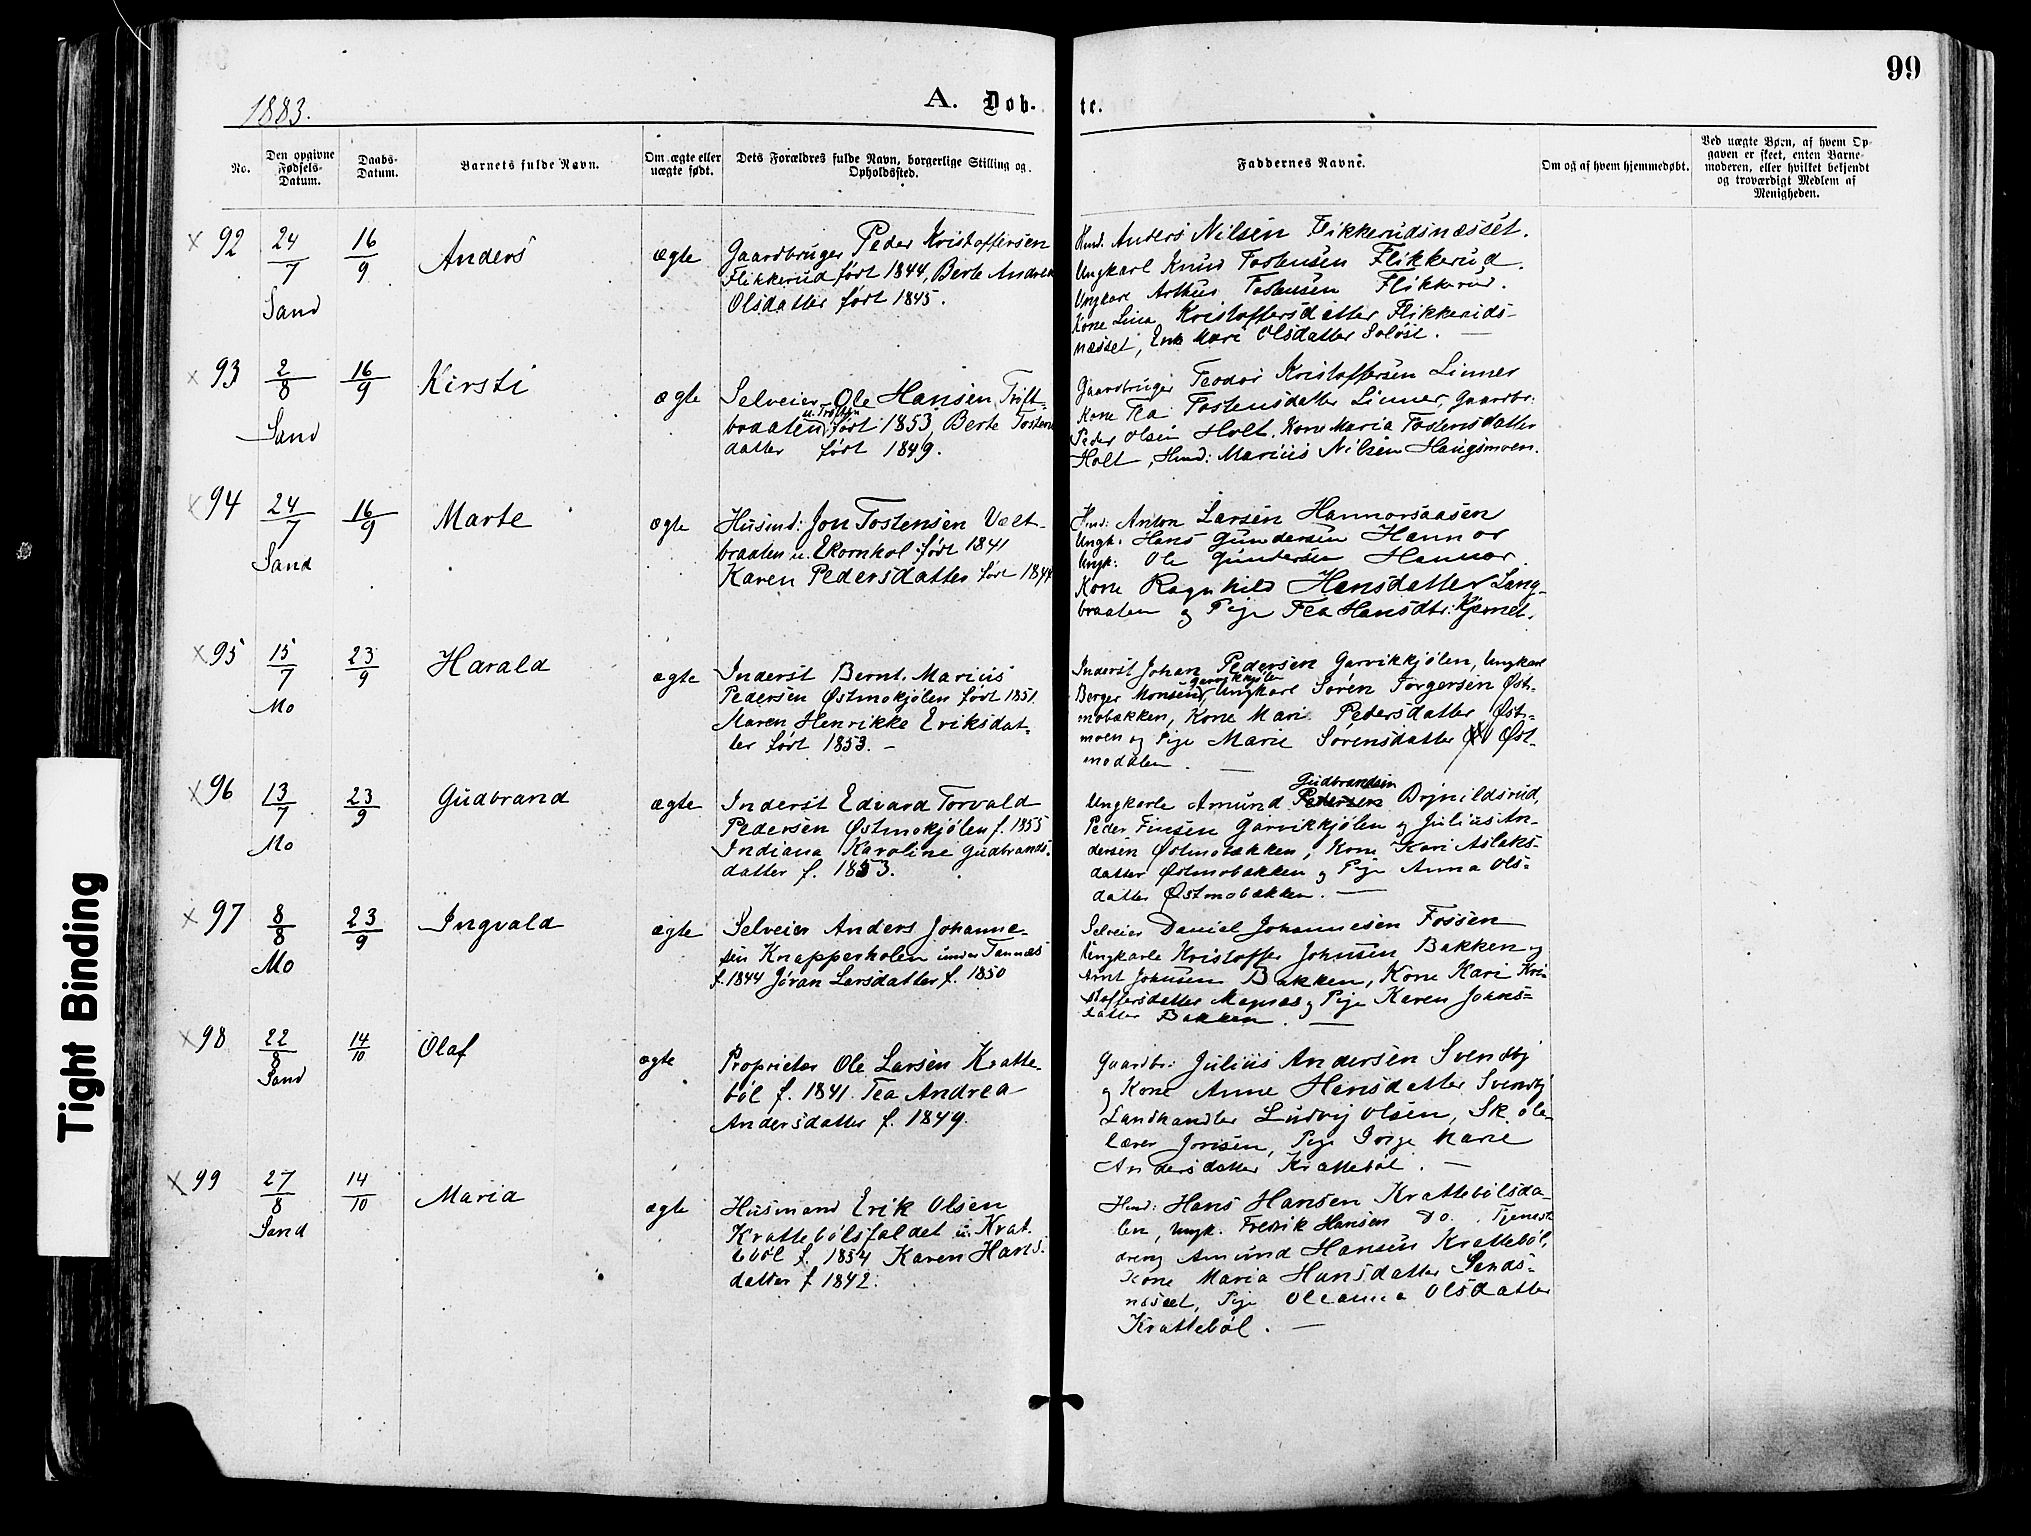 99
1883.
A. Døb-
te.
No.
Den opgivne Fødsels-Datum.
Daabs-Datum.
Barnets fulde Navn.
Om ægte eller uægte født.
Dets Forældres fulde Navn, borgerlige Stilling og Opholdssted.
Faddernes Navne.
Om og af hvem hjemmedøbt.
Ved uægte Børn, af hvem Op-
gaven er skeet, enten Barne-
moderen, eller hvilket bekjendt
og troværdigt Medlem af
Menigheden.
× 92 24/7 Sand 16/9 Anders ægte
Gaardbruger Peder Kristoffersen
Flikkerud født 1844, Berte Andrea
Olsdatter født 1845.
Hmd: Anders Nilsen Flikkerudsnæsset.
Ungkarl Knud Tostensen Flikkerud.
Ungkarl Arthur Tostensen Flikkerud.
Kone Lina Kristoffersdatter Flikkeruds-
næsset, Enke Mari Olsdatter
× 93 2/8 Sand 16/9 Kirsti ægte
Selveier Ole Hansen Trøft-
braaten født 1853, Berte Tostens
datter født 1849.
Gaardbruger Teodor Kristoffersen Linner
Kone Tea Tostensdatter Linner, Gaardbr:
Peder Olsen Holt. Kone Maria Tostensdatter
Holt, Hmd: Marius Nilsen Haugsmoen.
× 94 24/7 Sand 16/9 Marte ægte
Husmd: Jon Tostensen Vælt-
braaten u. Ekornhol født 1841
Karen Pedersdatter født
Hmd: Anton Larsen Hannorsaasen
Ungk: Hans Gundersen Hannor
Ungk: Ole Gundersen Hannor.
Kone Ragnhild Hansdatter Lang-
braaten og Pige Tea Hansdtr: Kjernet.
× 95 15/7 Mo 23/9 Harald ægte
Inderst Bernt Marius
Pedersen Østmokjølen født 1851
Maren Henrikke Eriksdat-
ter født 1853. –
Inderst Johan Pedersen Garvikkjølen, Ungkarl
Garvikkjølen
Berger Monsen, Ungkarl Søren Torgersen Øst-
mobækken, Kone Mari Pedersdatter Øst-
moen og Pige Marie Sørensdatter Øst-
modalen.
× 96 13/7 Mo 23/9 Gudbrand ægte
Inderst Edvard Torvald
Pedersen Østmokjølen f. 1855
Indiana Karoline Gudbrands-
datter f. 1853.
Gudbrandsen
Ungkarle Amund Pedersen Brynildsrud,
Peder Finsen Garvikkjølen og Julius An-
dersen Østmobækken, Kone Kari Aslaks-
datter Østmobækken og Pige Anna Ols-
datter Østmobækken. –
× 97 8/8 Mo 23/9 Ingvald ægte
Selveier Anders Johanne-
sen Knapperholen under Tannæs
f. 1844 Jøran Larsdatter f. 1850
Selveier Daniel Johannesen Fossen
Ungkarle Kristoffer Johnsen Bakken og
Arnt Johnsen Bakken, Kone Kari Kri-
stoffersdatter og Pige Karen Johns-
datter Bakken. –
× 98 22/8 Sand 14/10 Olaf ægte
Proprietær Ole Larsen Kratte-
bøl f. 1841. Tea Andrea
Andersdatter f. 1849.
Gaardbr: Julius Andersen Svendby
og Kone Anne Hansdatter Svendby
Landhandler Ludvig Olsen, Skole-
lærer Jonsen, Pige Inge Marie
Andersdatter Krattebøl. –
× 99 27/8 Sand 14/10 Maria ægte
Husmand Erik Olsen
Krattebølsfaldet u. Krat-
tebøl f. 1854 Karen Hans-
datter f 1842.
Hmd: Hans Hansen Krattebølsda-
len, Ungk. Fredrik Hansen Do. Tjeneste
dreng Amund Hansen Krattebøl,
Kone Maria Hansdatter Sands-
næsset, Pige Oleanna Olsdatter
Krattebøl. –
Tight Binding